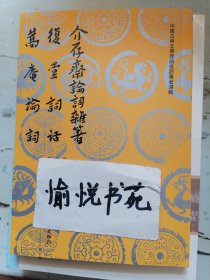 中國古典文學理論批評專著選輯
介存齋論詞雜著
復堂詞話
蒿庵論詞
愉悦书苑